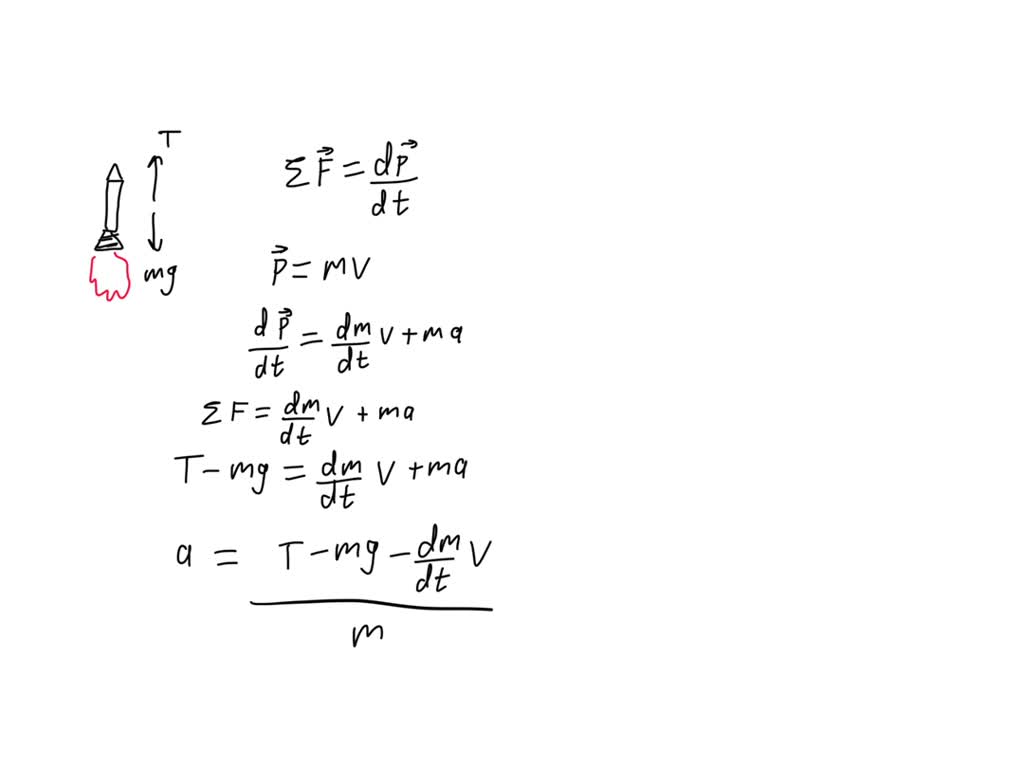 T
mg
Σ F⃗ = dp⃗/dt
p⃗ = mv
dp⃗/dt = dm/dt v + ma
Σ F = dm/dt v + ma
T - mg = dm/dt v + ma
a = (T - mg - dm/dt v)/m